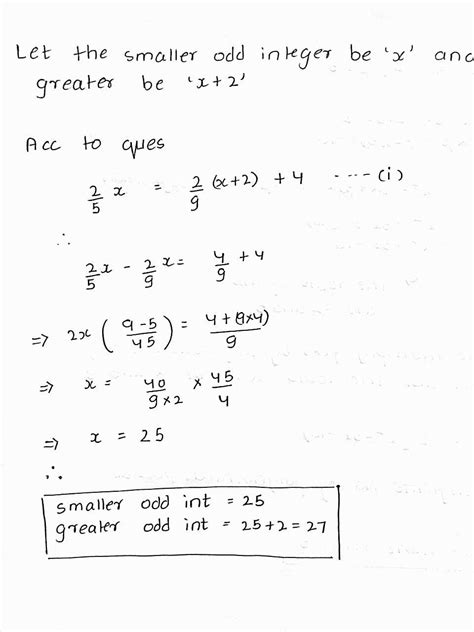 Let the smaller odd integer be 'x' and
greater be 'x+2'
Acc to ques
2/5 x = 2/9 (x+2) + 4 ----(i)
∴
2/5 x - 2/9 x = 4/9 + 4
⇒ 2x ( 9-5/45 ) = 4+(9×4)/9
⇒ x = 40/9×2 × 45/4
⇒ x = 25
∴
smaller odd int = 25
greater odd int = 25+2 = 27